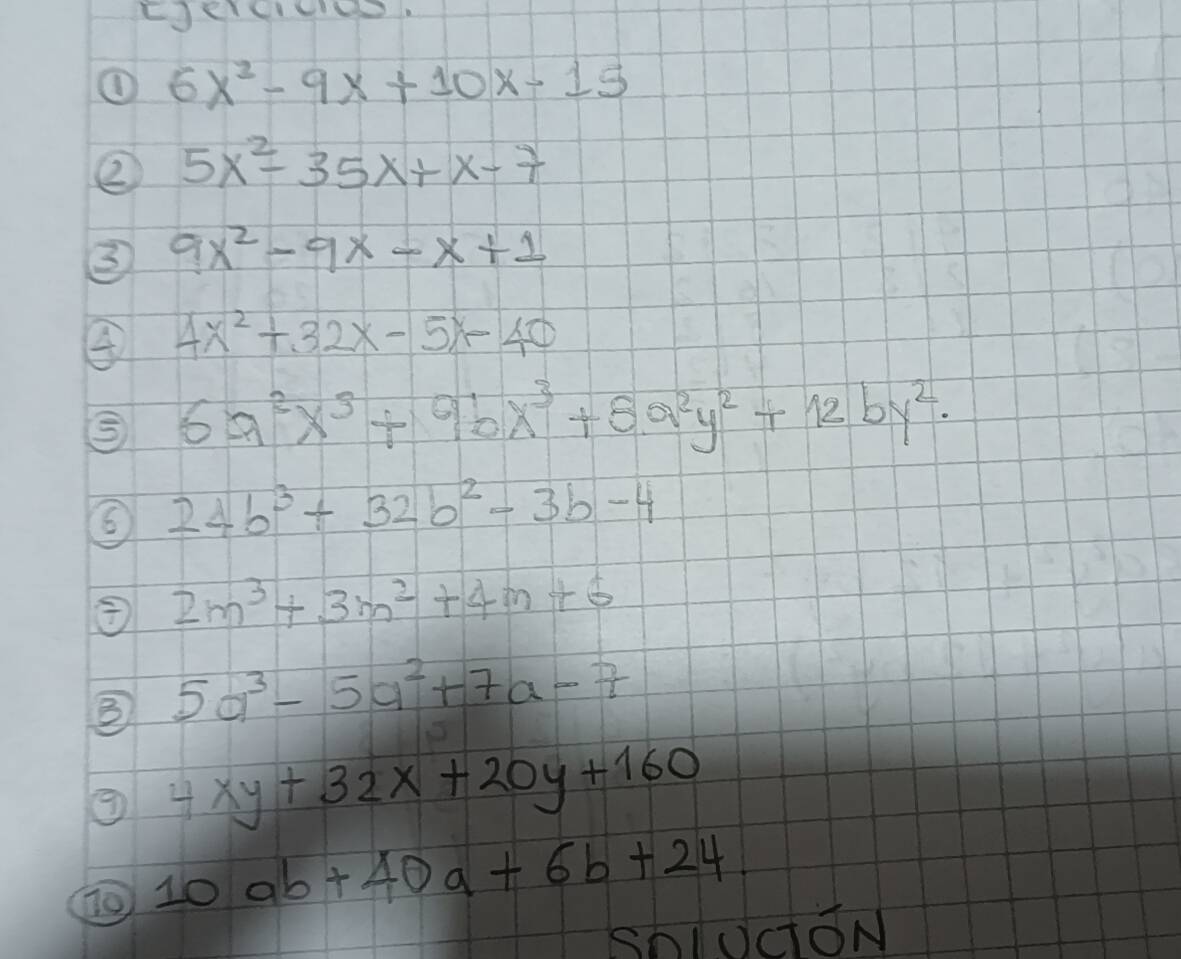 Ejercicios.
① 6x² - 9x + 10x - 15
② 5x² - 35x + x - 7
③ 9x² - 9x - x + 1
④ 4x² + 32x - 5x - 40
⑤ 6a²x³ + 9bx³ + 8a²y² + 12by².
⑥ 24b³ + 32b² - 3b - 4
⑦ 2m³ + 3m² + 4m + 6
⑧ 5a³ - 5a² + 7a - 7
⑨ 4xy + 32x + 20y + 160
⑩ 10ab + 40a + 6b + 24
SOLUCIÓN